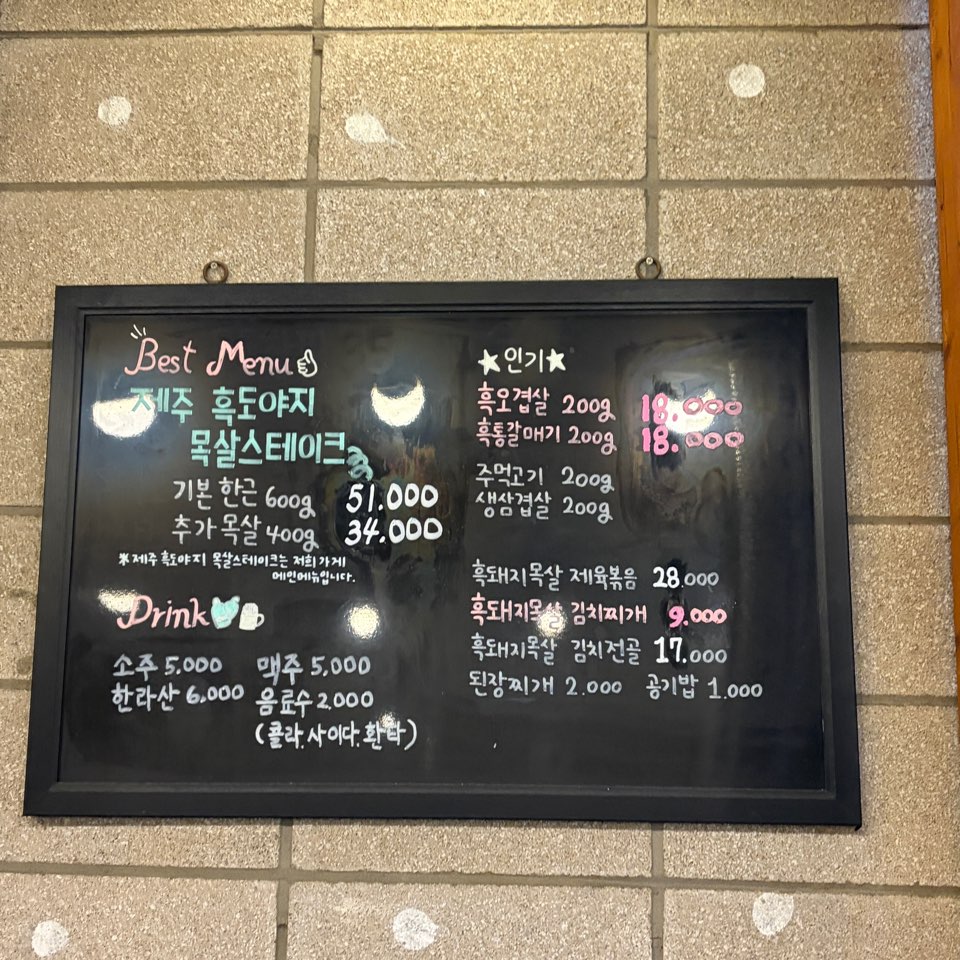 Best Menu
제주 흑도야지
목살스테이크
기본 한근 600g 51.000
추가 목살 400g 34.000
※제주 흑도야지 목살스테이크는 저희 가게
메인메뉴입니다.
Drink
소주 5,000 맥주 5,000
한라산 6,000 음료수 2,000
(콜라.사이다.환타)
★인기★
흑오겹살 200g 18.000
흑통갈매기 200g 18.000
주먹고기 200g
생삼겹살 200g
흑돼지목살 제육볶음 28.000
흑돼지목살 김치찌개 9.000
흑돼지목살 김치전골 17.000
된장찌개 2.000 공기밥 1.000